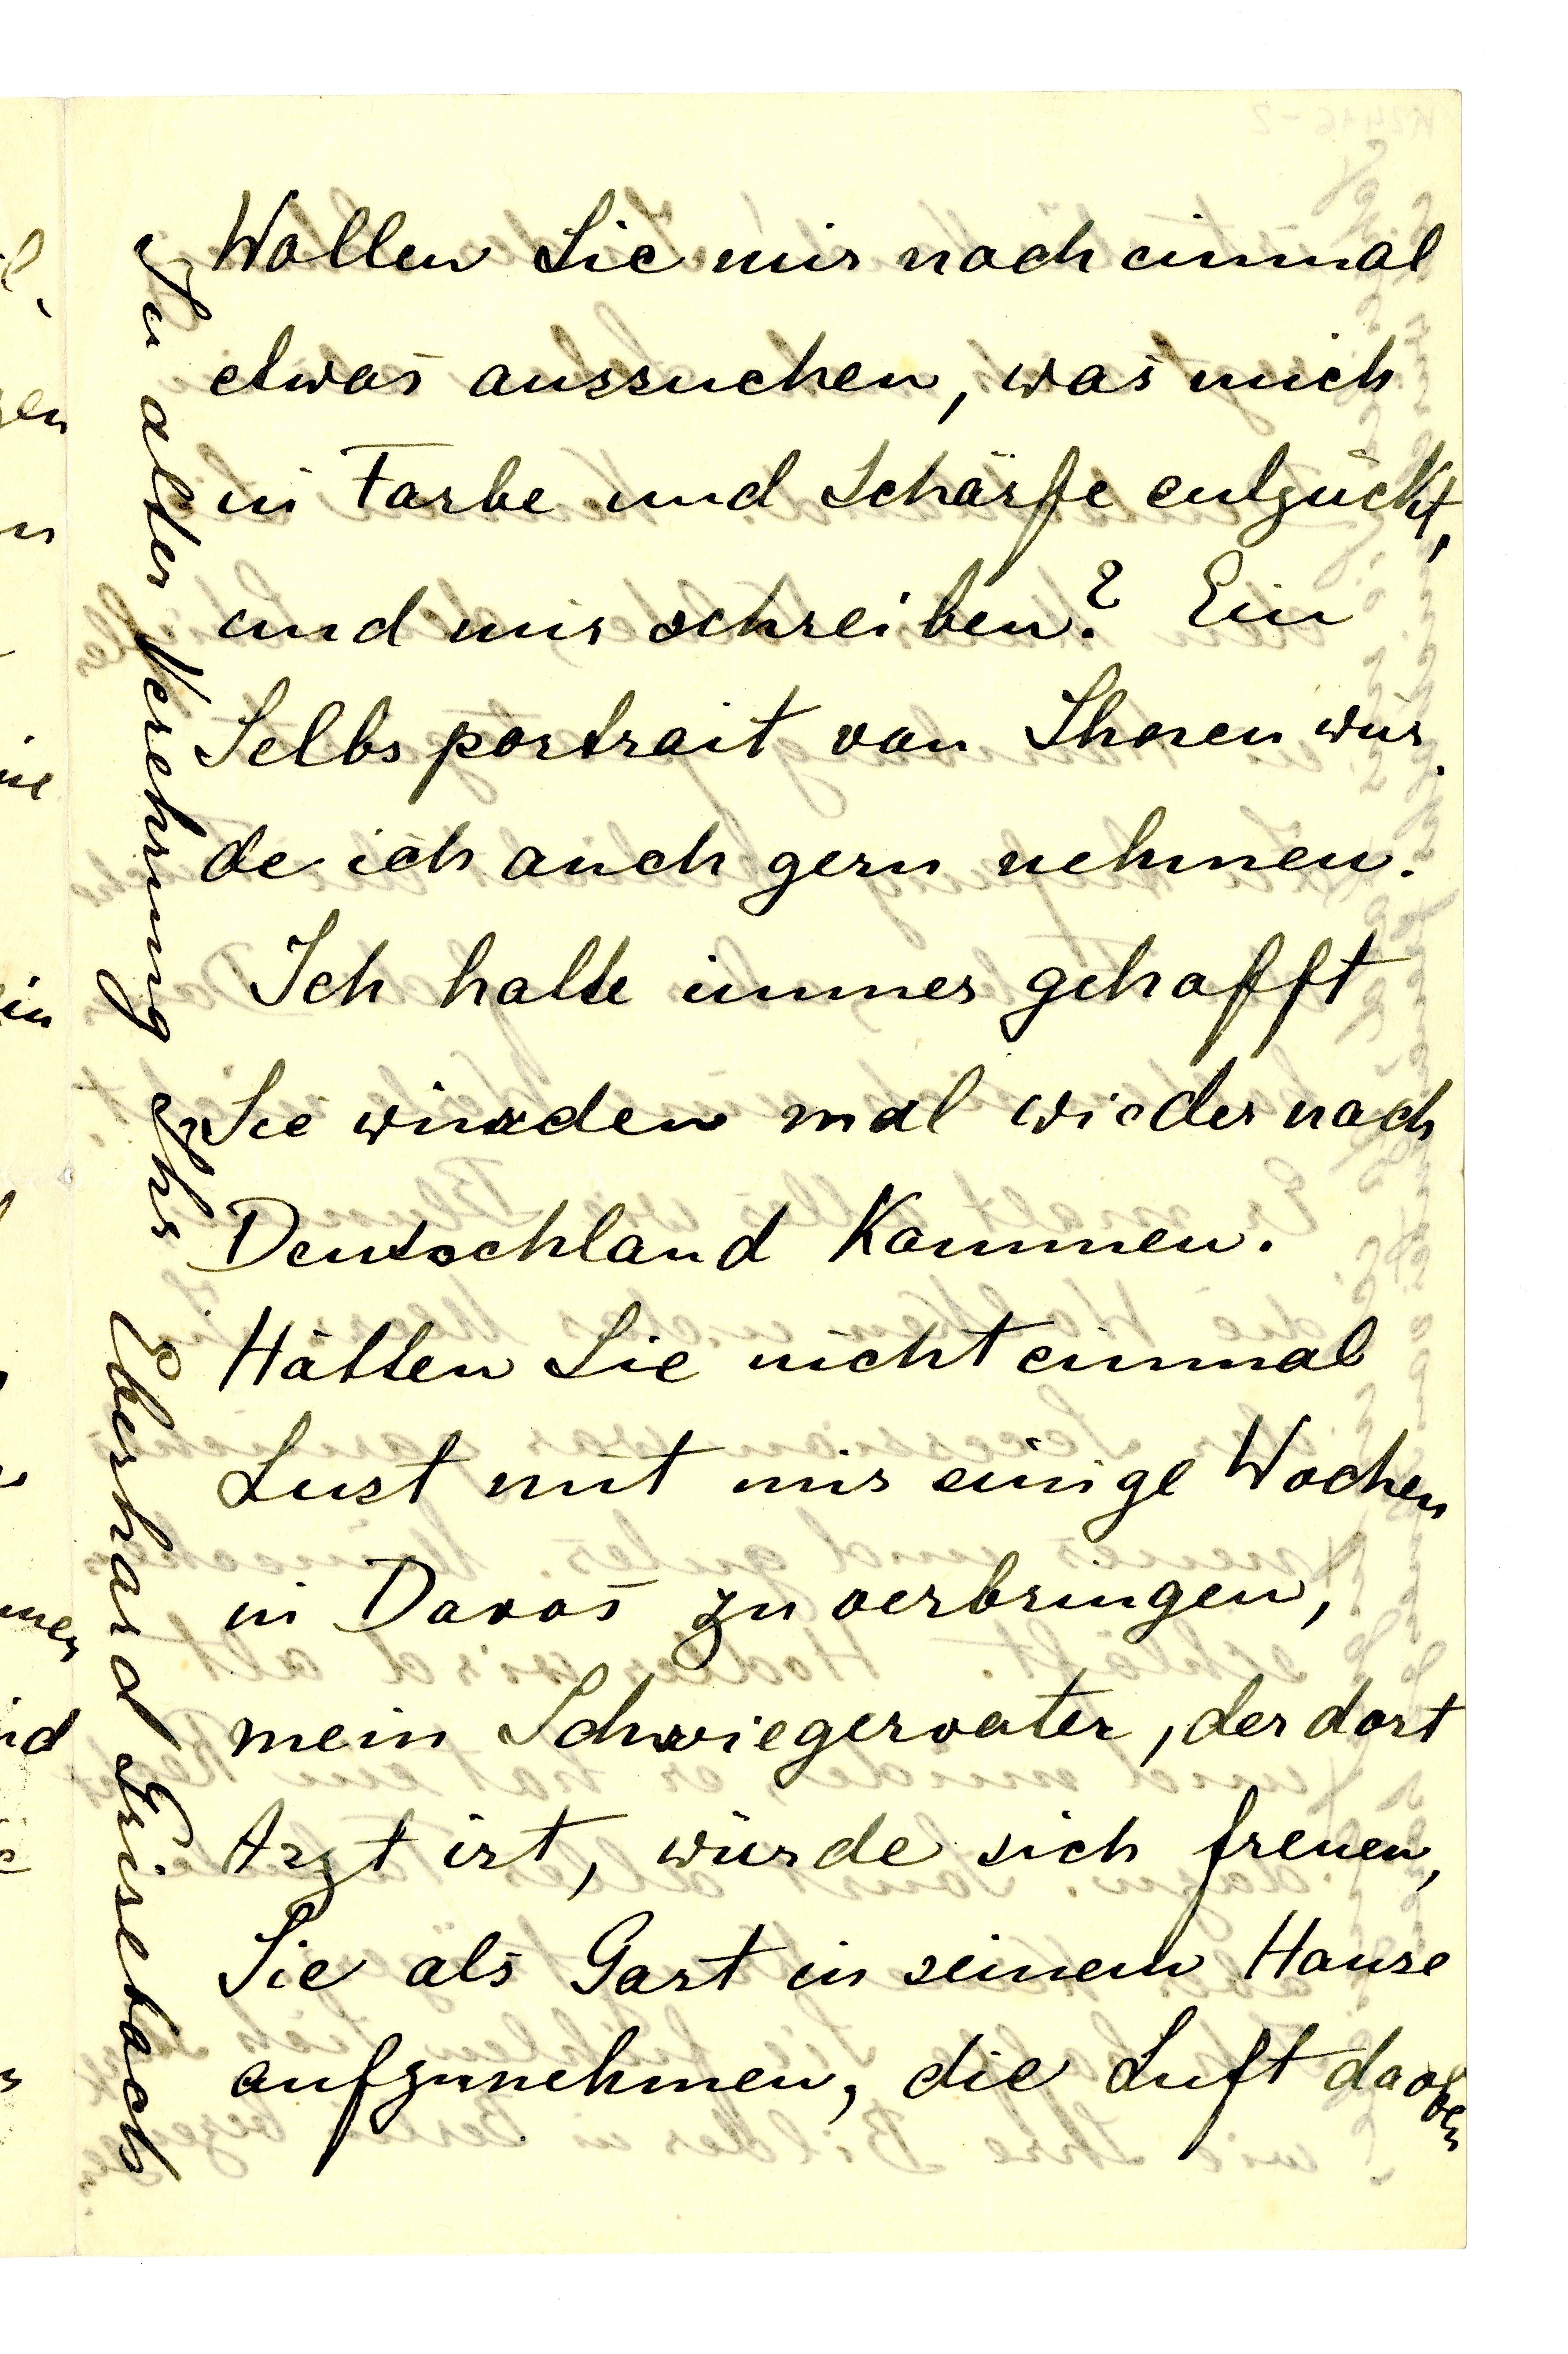 Wollen Sie mir noch einmal
etwas aussuchen, was mich
in Farbe und Schärfe entzückt,
und mir schreiben? Ein
Selbsportrait von Ihnen wür
de ich auch gern nehmen.
Ich hatte immer gehofft
Sie würden mal wieder nach
Deutschland kommen.
Hätten Sie nicht einmal
Lust mit mir einige Wochen
in Davos zu verbringen,
mein Schwiegervater, der dort
Arzt ist, würde sich freuen,
Sie als Gast in seinem Hause
aufzunehmen, die Luft da oben
In alter Verehrung Ihr
Eberhard Grisebach